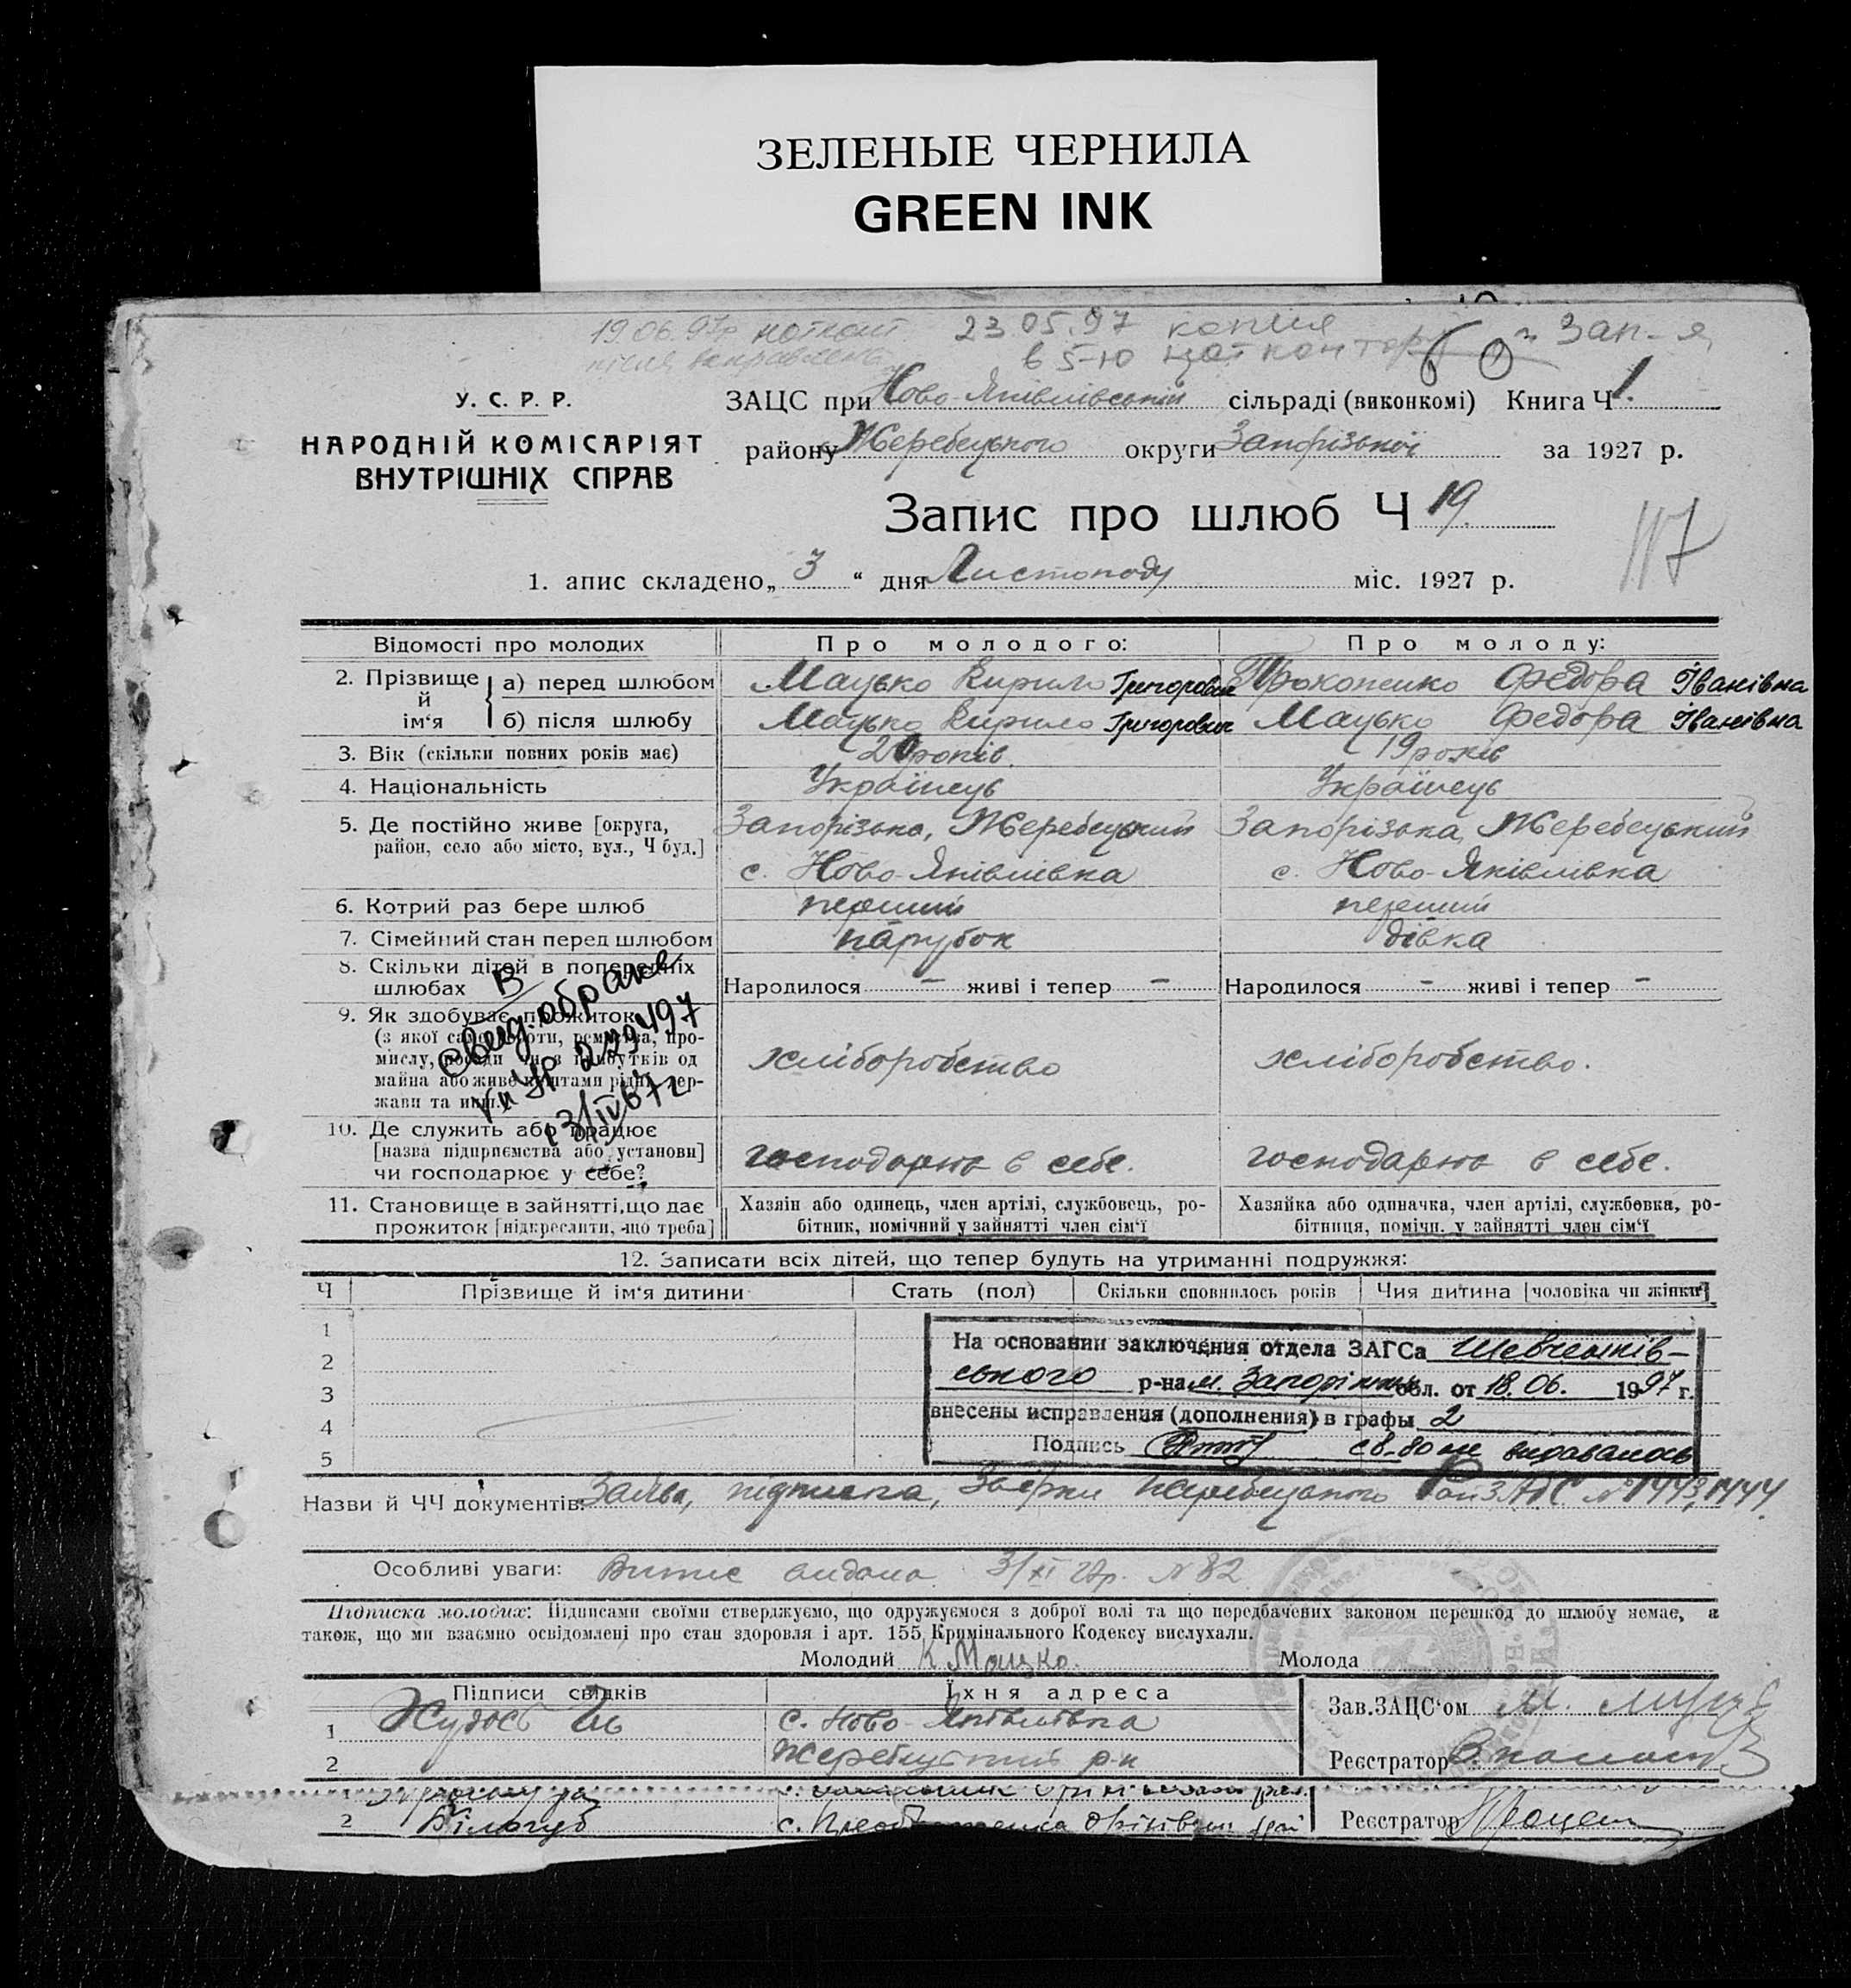 ЗЕЛЕНЫЕ ЧЕРНИЛА
GREEN INK
19.06.97р
23.05.97 копия
в 5-ю
У. С. Р. Р.
НАРОДНІЙ КОМІСАРІЯТ
ВНУТРІШНІХ СПРАВ
ЗАЦС при Ново-Яківлівській сільраді (виконкомі) Книга Ч 1.
району Жеребецького округи Запорізької за 1927 р.
Запис про шлюб Ч 19.
117
1. апис складено „ 3 “ дня Листопаду міс. 1927 р.
Відомості про молодих
Про молодого:
Про молоду:
2. Прізвище й ім‘я
а) перед шлюбом
Мацько Кирило Григорович
Прокопенко Федора Іванівна
б) після шлюбу
Мацько Кирило Григорович
Мацько Федора Іванівна
3. Вік (скільки повних років має)
20 років.
19 років
4. Національність
Українець
Українець
5. Де постійно живе [округа,
район, село або місто, вул., Ч буд.]
Запорізька, Жеребецький
с. Ново-Яківлівка
Запорізька, Жеребецький
с. Ново-Яківлівка
6. Котрий раз бере шлюб
перший
перший
7. Сімейний стан перед шлюбом
парубок
дівка
8. Скільки дітей в попередніх
шлюбах
Народилося - живі і тепер -
Народилося - живі і тепер -
9. Як здобуває прожиток
(з якої саме роботи, ремества, про-
мислу, посади чи з прибутків од
майна або живе коштами рідні, дер-
жави та инш.)
хліборобство
хліборобство.
В
свид. о браке
279497
13/IV 67 г
10. Де служить або працює
[назва підприємства або установи]
чи господарює у себе?
господарює в себе.
господарює в себе.
11. Становище в зайнятті, що дає
прожиток [підкреслити, що треба]
Хазяїн або одинець, член артілі, службовець, ро-
бітник, помічний у зайнятті член сім‘ї
Хазяйка або одиначка, член артілі, службовка, ро-
бітниця, помічн. у зайнятті член сім‘ї
12. Записати всіх дітей, що тепер будуть на утриманні подружжя:
Ч
Прізвище й ім‘я дитини
Стать (пол)
Скільки сповнилось років
Чия дитина [чоловіка чи жінки]
1
2
3
4
5
На основании заключения отдела ЗАГСа Шевченків-
ського р-на м. Запоріжжя обл. от 18.06. 1997 г.
внесены исправления (дополнения) в графы 2
Подпись св-во не выдавалось
Назви й ЧЧ документів: Заява, підписка, Жеребецького РайЗАГС № 1443, 1444
Особливі уваги: Витис видана 3/XI 27р. N 82
Підписка молодих: Підписами своїми стверджуємо, що одружуємося з доброї волі та що передбачених законом перешкод до шлюбу немає, а
також, що ми взаємно освідомлені про стан здоровля і арт. 155 Кримінального Кодексу вислухали.
Молодий К Мацко.
Молода
Підписи свідків
Їхня адреса
1
с. Ново-Яківлівка
2
Жеребецький р-н
Зав. ЗАЦС‘ом
Реєстратор
2 Білогуб
Реєстратор